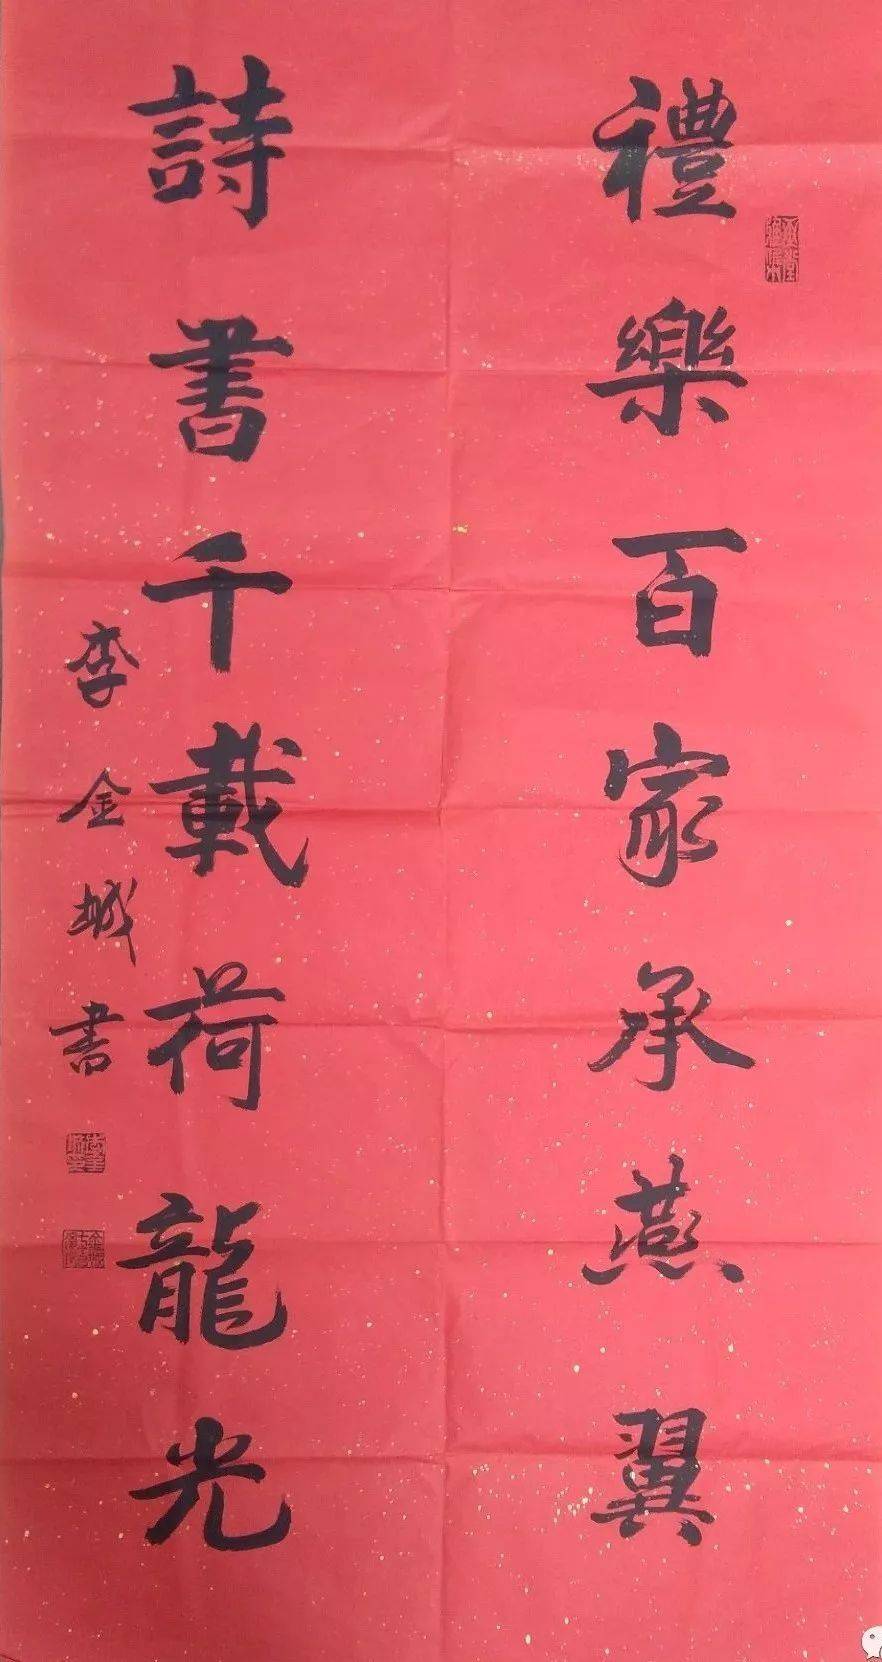 禮樂百家承燕翼
詩書千載荷龍光
李金城書